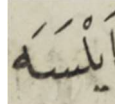 اَيْلَسَه